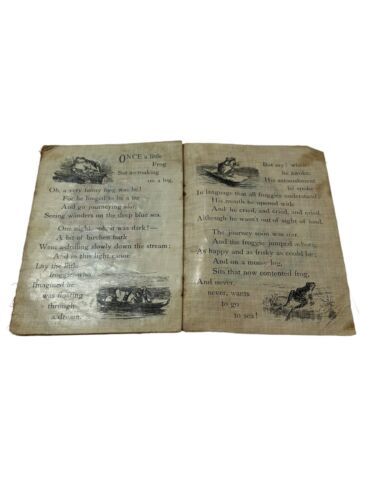 ONCE a little
Frog
Sat a-croaking
on a log,
Oh, a very funny frog was he!
For he longed to be a tee
And go journeying
Seeing wonders on the deep blue sea.
One night—oh, it was dark!—
A bit of birchen bark
Went a-drifting slowly down the stream;
And in this light canoe
Lay the little
froggie who
Imagined he
was floating
through
a dream.
But my! when
he awoke,
His astonishment
he spoke
In language that all froggies understand!
His mouth he opened wide
And he cried, and cried, and cried,
Although he wasn't out of sight of land.
The journey soon was o'er,
And the froggie jumped ashore,
As happy and as frisky as could be;
And on a mossy log,
Sits that now contented frog,
And never,
never, wants
to go
to sea!